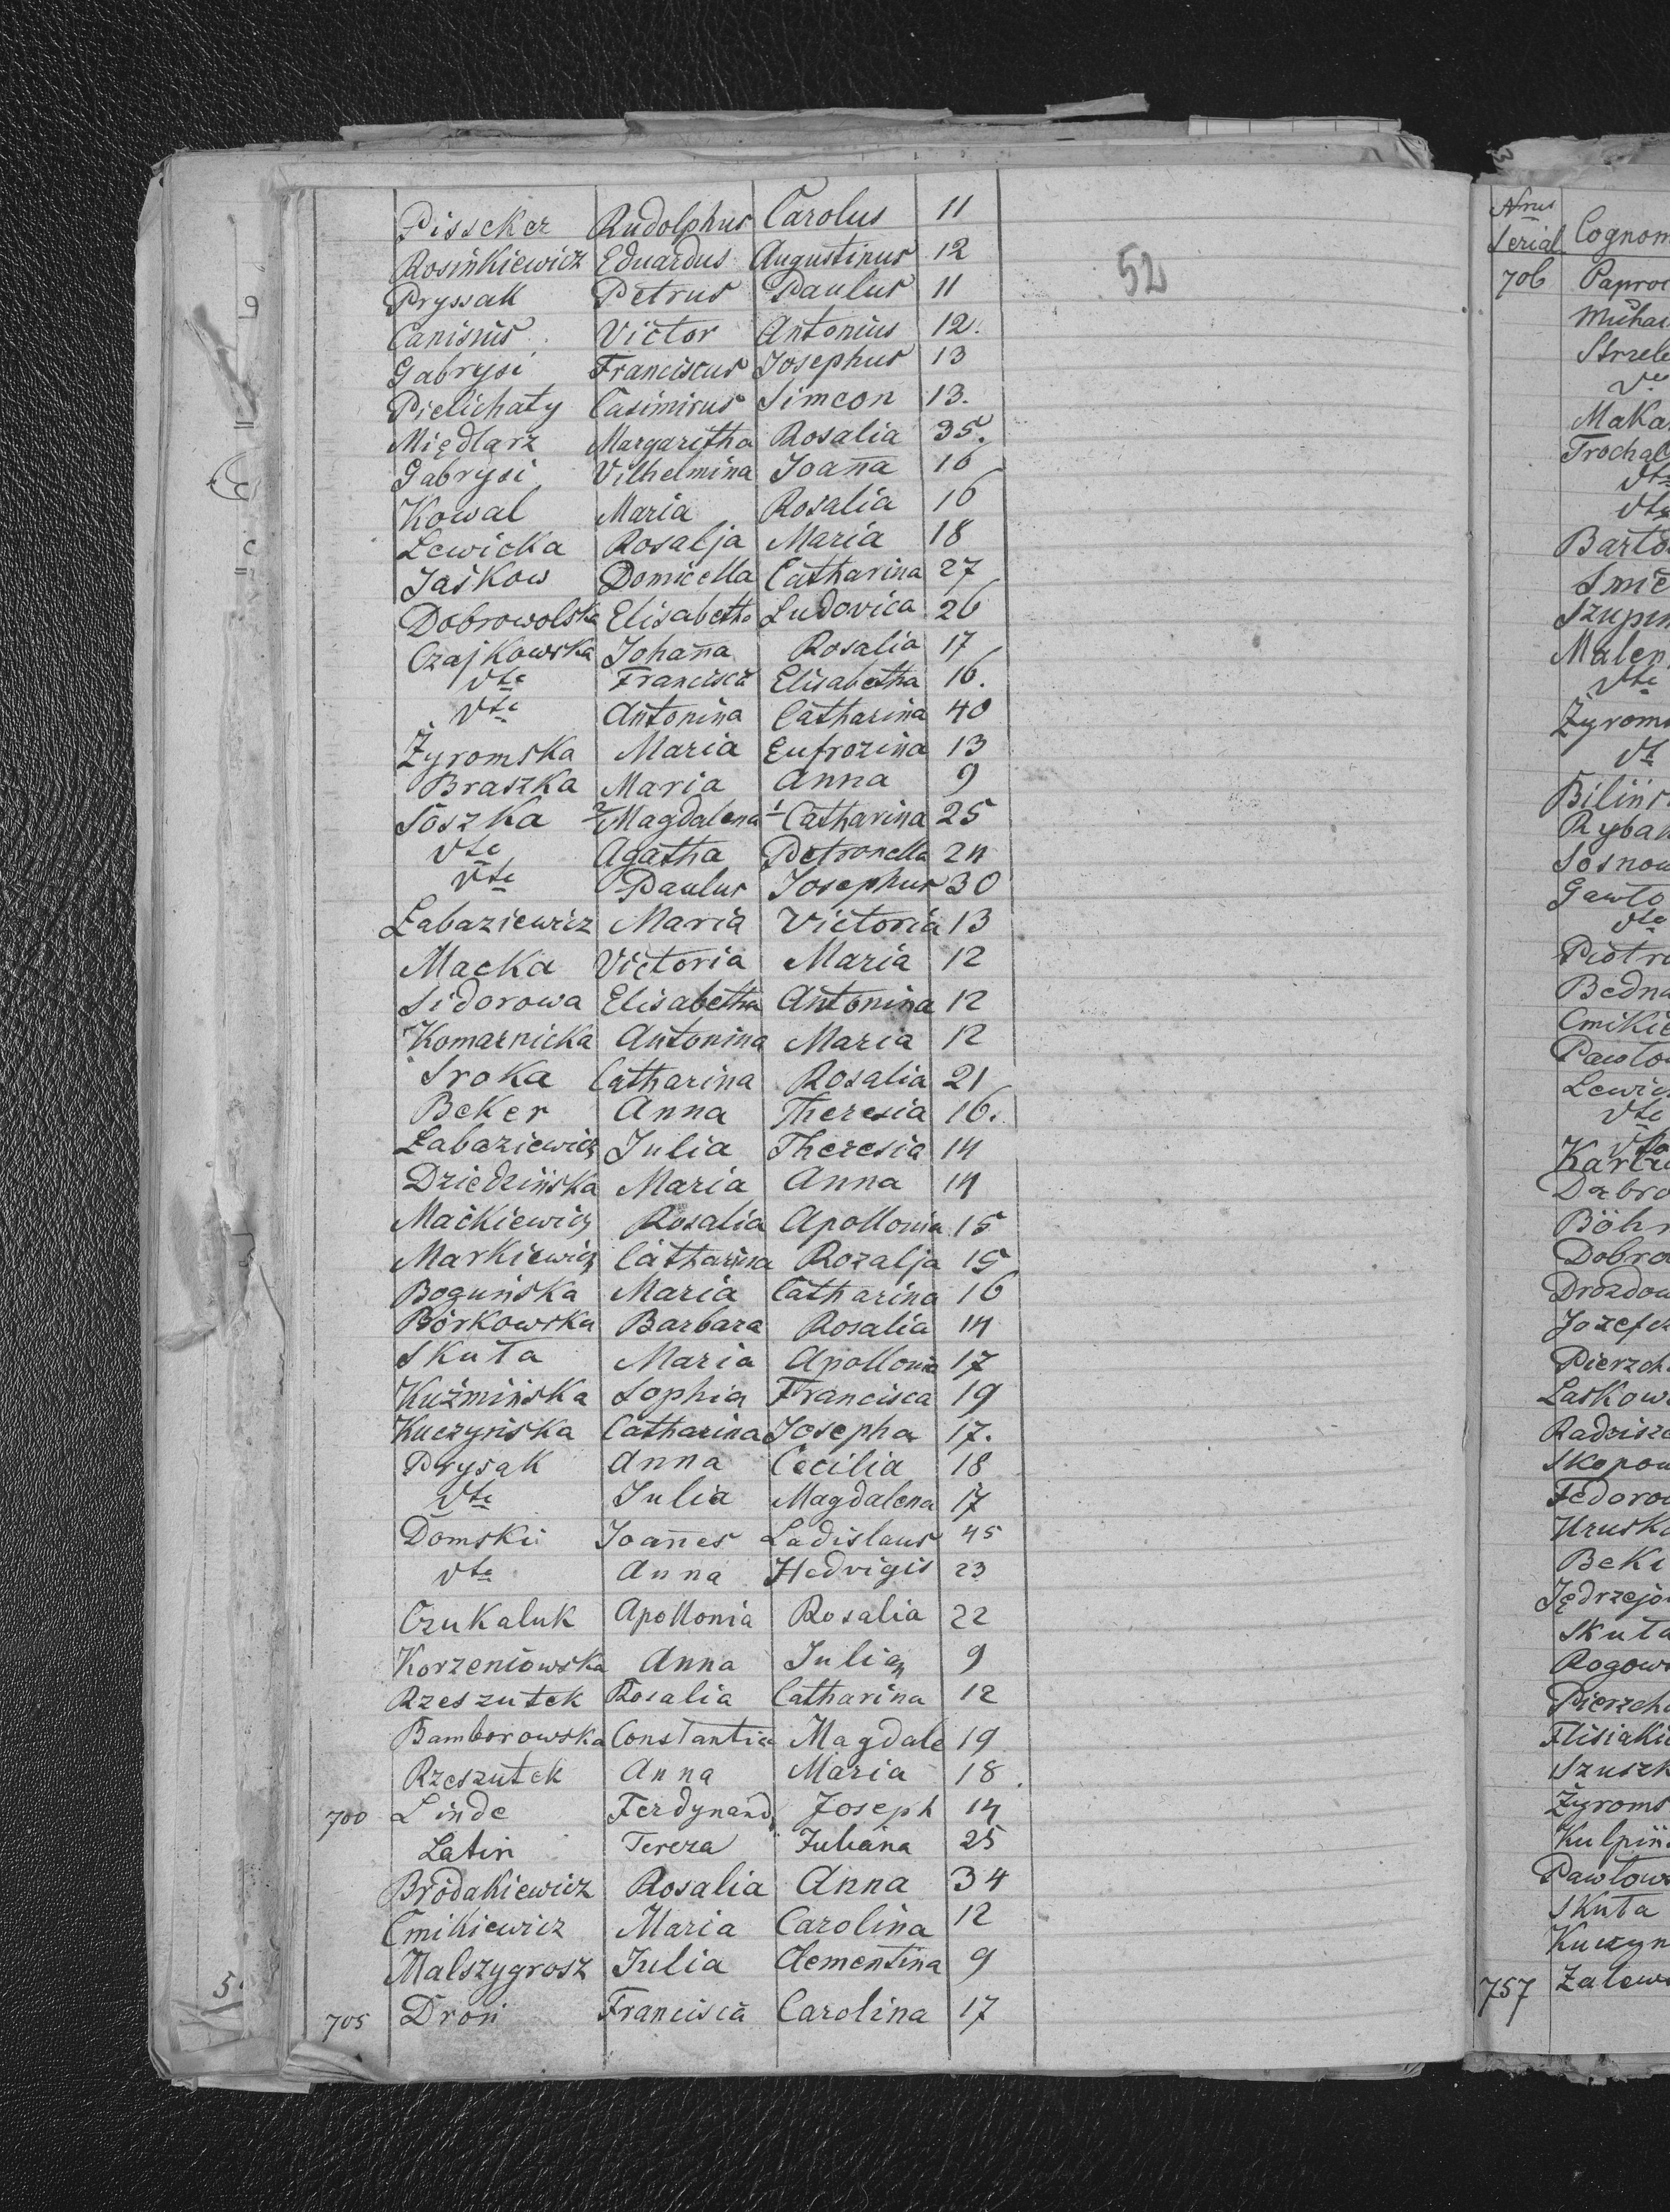 Pisseker Rudolphus Carolus 11
Rosinkiewicz Eduardus Augustinus 12
52
Pryssak Petrus Paulus 11
Canisius Victor Antonius 12.
Gabrysi Franciscus Josephus 13
Pielichaty Casimirus Simeon 13.
Międlarz Margaretha Rosalia 35.
Gabrysi Vilhelmina Joanna 16
Kowal Maria Rosalia 16
Lewicka Rosalja Maria 18
Jaśkow Domicella Catharina 27
Dobrowolska Elisabetha Ludovica 26
Czajkowska Johanna Rosalia 17
dte Francisca Elisabetha 16.
dte Antonina Catharina 40
Żyromska Maria Eufrozina 13
Braszka Maria Anna 9
Soszka 2/Magdalena 1/Catharina 25
dte Agatha Petronella 24
dte Paulus Josephus 30
Łabaziewicz Maria Victoria 13
Macka Victoria Maria 12
Sidorowa Elisabetha Antonina 12
Komarnicka Antonina Maria 12
Sroka Catharina Rosalia 21
Beker Anna Theresia 16.
Łabaziewicz Julia Theresia 14
Dziedzińska Maria Anna 14
Maćkiewicz Rosalia Apollonia 15
Markiewicz Catharina Rozalja 15
Boguńska Maria Catharina 16
Borkowska Barbara Rosalia 14
Skuta Maria Apollonia 17
Kuźmińska Sophia Francisca 19
Kuczyńska Catharina Josepha 17.
Prysak Anna Cecilia 18
dte Julia Magdalena 17
Domski Joannes Ladislaus 45
dte Anna Hedvigis 23
Czukaluk Apollonia Rosalia 22
Korzeniowska Anna Julia 9
Rzeszutek Rosalia Catharina 12
Bamborowska Constantia Magdale 19
Rzeszutek Anna Maria 18
700 Linde Ferdynand Joseph 14
Latin Tereza Juliana 25
Brodakiewicz Rosalia Anna 34
Cmikiewicz Maria Carolina 12
Malszygrosz Julia Clementina 9
705 Droń Francisca Carolina 17
Nrus
Serial Cognom
706 Paproc
Muhar
Strzele
dte
Maka
Trochal
dte
dte
Barto
Smie
Szupin
Malen
dte
Żyrom
dte
Bilińs
Ryba
Sosnow
Gawło
dte
Piotro
Bedna
Cmikie
Pawło
Lewic
dte
dto
Dąbro
Böhr
Dobro
Drozdow
Jozefcz
Pierzch
Laskow
Radzisze
Skopow
Fedorow
Uruska
Beki
Jędrzejo
Skuta
Rogow
Pierzcha
Flisiaki
Szuszk
Żyroms
Kulpiń
Pawłows
Skuta
Kuczyn
757 Zalews